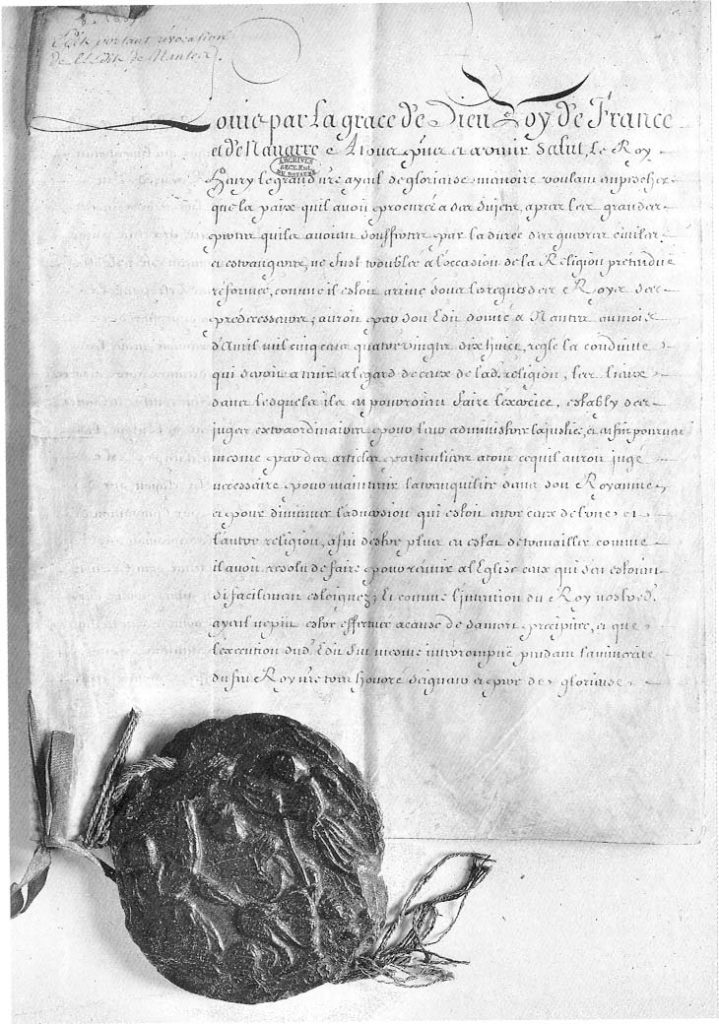 Edit portant revocation
de l'Edit de Nantes.
Louis par la grace de Dieu Roy de France
et de Navarre a tous pñs et a venir Salut, Le Roy
ARCHIVES
Henry le grand nre ayeul de glorieuse memoire voulant empescher
que la paix quil avoit procurée a ses Sujets, apres les grandes
pertes quils avoient souffertes par la durée des guerres civiles
et estrangeres, ne fust troublée a l'occasion de la Religion pretendue
reformée, comme il estoit arrivé sous les regnes des Roys ses
predecesseurs, auroit par son Edit donné a Nantes au mois
d'Avril mil cinq cens quatre vingts dix huict, reglé la conduitte
qui devoit a tenir a l'egard de ceux de lad. religion, les lieux
dans lesquels ils en pouroient faire l'exercice, estably des
juges extraordinaires pour leur administrer la justice, et enfin pourveu
mesme par des articles particuliers a tout ce qu'il auroit jugé
necessaire pour maintenir la tranquilité dans son Royaume
et pour diminuer l'aversion qui estoit entre ceux de l'une et
l'autre religion, afin d'estre plus en estat de travailler comme
il avoit resolu de faire pour reünir a l'Eglise ceux qui s'en estoient
si facilement esloignez; Et comme l'intention du Roy nostred.
ayeul ne put estre effectuée a cause de sa mort precipitée, et que
l'execution dud. Edit fut mesme interrompüe pendant la minorité
du feu Roy nre tres honoré seigneur et pere de glorieuse